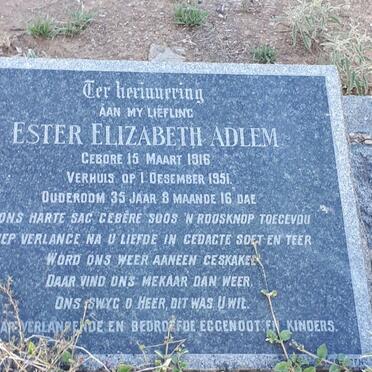 Ter herinnering
AAN MY LIEFLING
ESTER ELIZABETH ADLEM
GEBORE 15 MAART 1916
VERHUIS OP 1 DESEMBER 1951.
OUDERDOM 35 JAAR 8 MAANDE 16 DAE
ONS HARTE SAG GEBÊRE SOOS 'N ROOSKNOP TOEGEVOU
VERLANGE NA U LIEFDE IN GEDAGTE SOET EN TEER
WORD ONS WEER AANEEN GESKAKEL
DAAR VIND ONS MEKAAR DAN WEER,
ONS SWYG O HEER, DIT WAS U WIL.
VERLANGENDE EN BEDROEFDE EGGENOOT EN KINDERS.